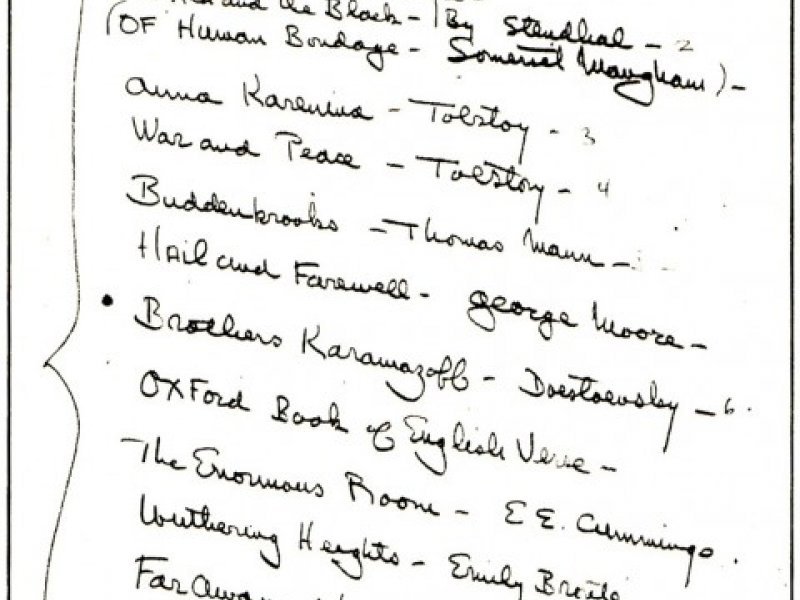 and the Black - (By Stendhal - 2
(OF Human Bondage - Somerset Maugham) -
Anna Karenina - Tolstoy - 3
War and Peace - Tolstoy - 4
Buddenbrooks - Thomas Mann -
Hail and Farewell - George Moore -
• Brothers Karamazoff - Doestoevsky - 6.
OXFord Book of English Verse -
The Enormous Room - E E. Cummings.
Wuthering Heights - Emily Bronte
Far Away